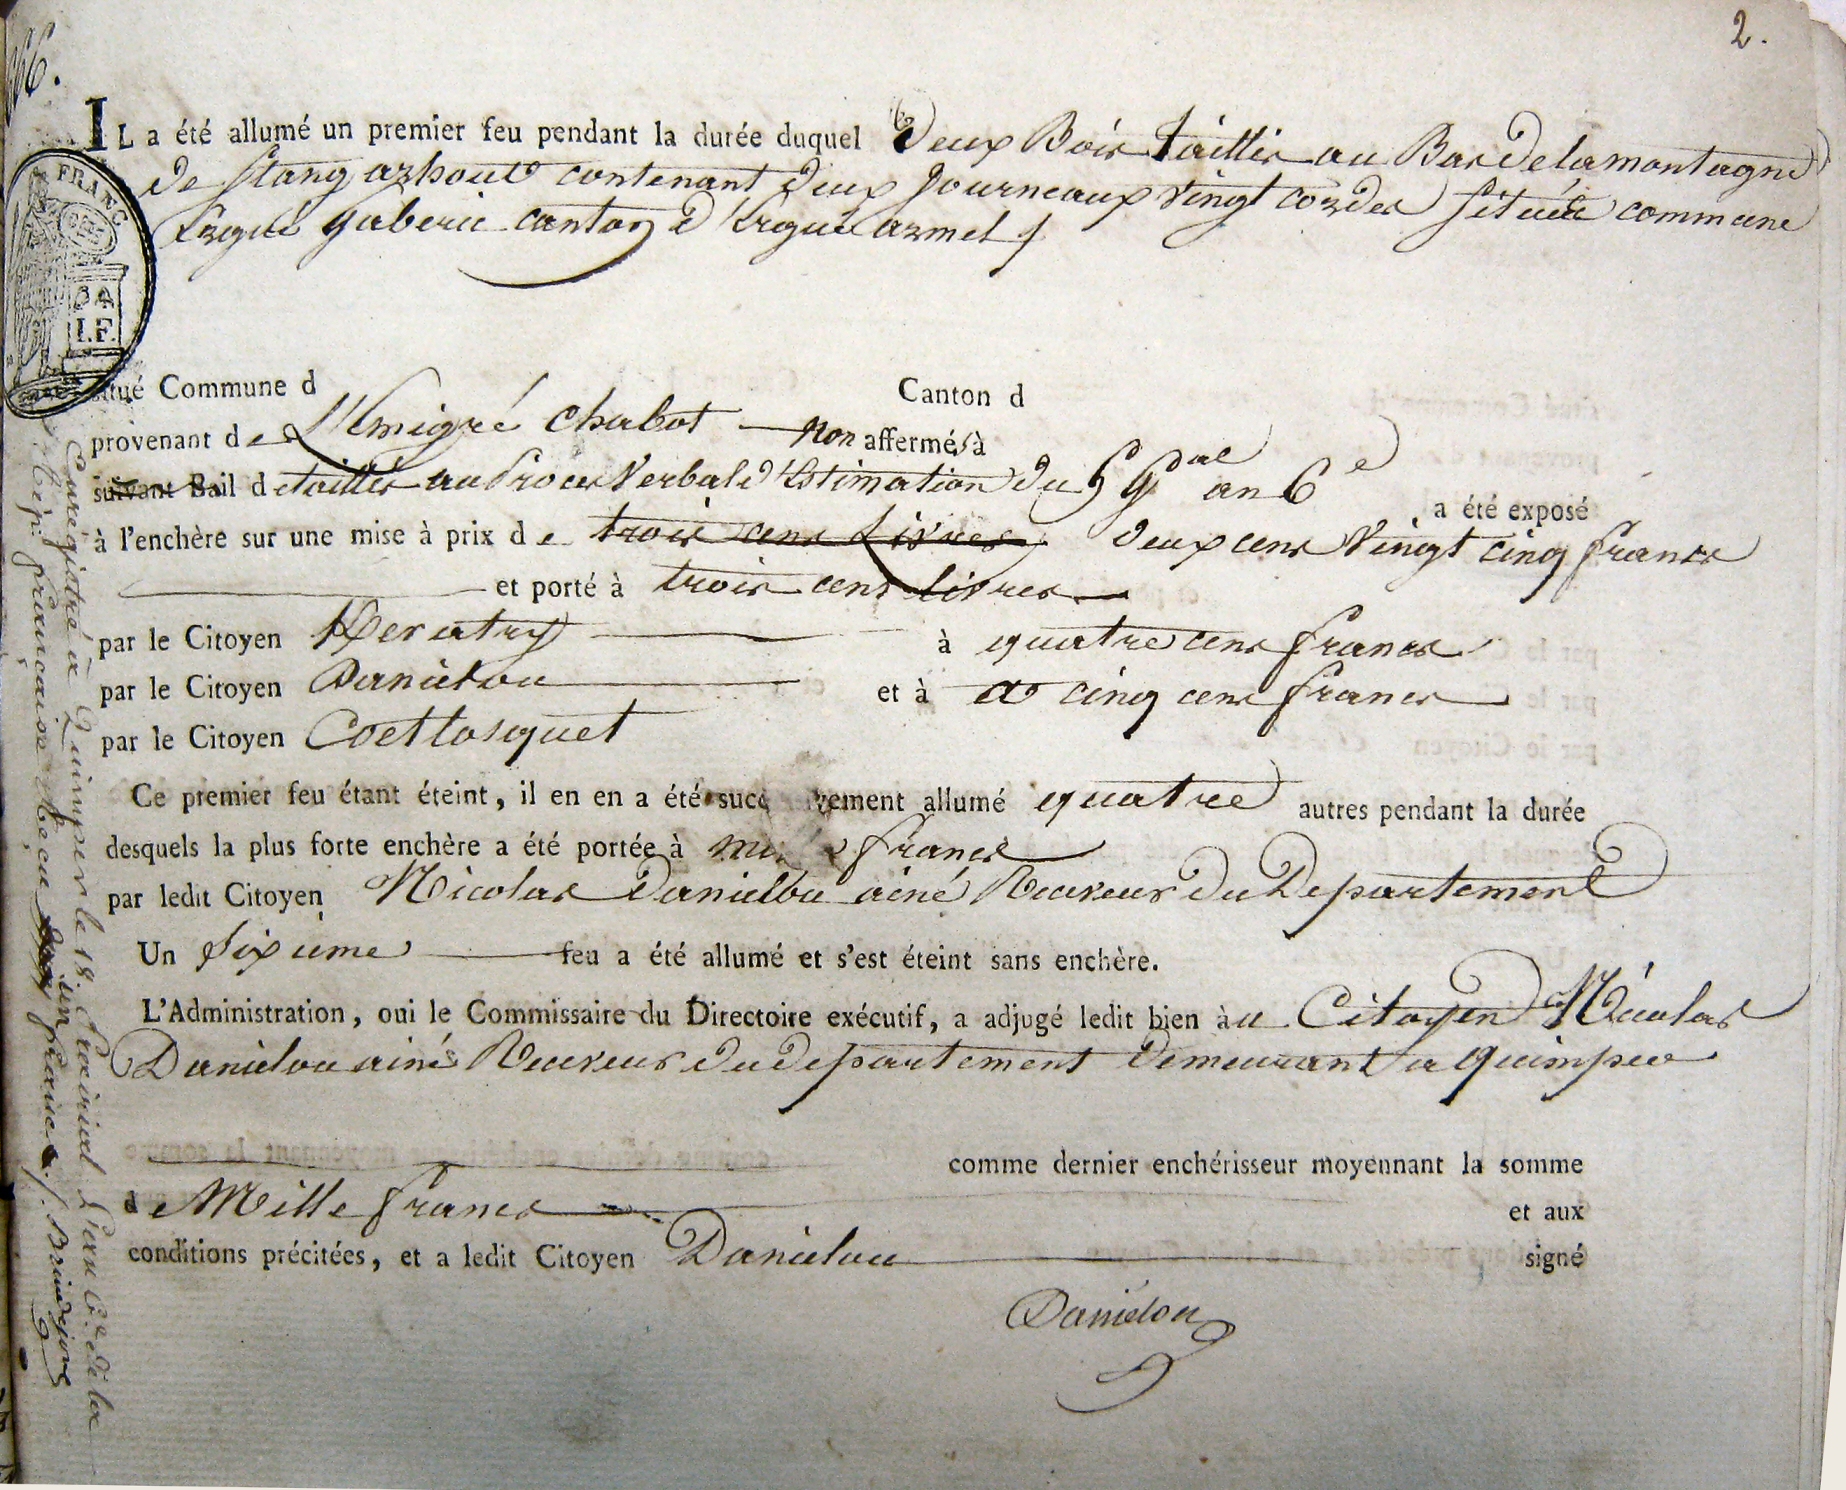 2.
IL a été allumé un premier feu pendant la durée duquel Deux Bois taillis au Bas de la montagne
de Stang azhout contenant deux Journeaux vingt cordes Situéé commune
Ergué gaberic canton d'Ergué armel
FRANC.
I.F.
situé Commune d Canton d
provenant de L'émigré chabot non affermés à
suivant Bail detaillés au Proces Verbal d'Estimation du 5 Gal an 6e a été exposé
à l'enchère sur une mise à prix de trois cens Livres Deux cens vingt cinq francs
et porté à trois cens livres
par le Citoyen Keratry à quatre cens francs
par le Citoyen Danielou et à a cinq cens francs
par le Citoyen Coetlosquet
Ce premier feu étant éteint, il en en a été vement allumé quatre autres pendant la durée
desquels la plus forte enchère a été portée à francs
par ledit Citoyen Nicolas Danielou ainé Receveur du Departement
Un Sixieme feu a été allumé et s'est éteint sans enchère.
L'Administration, oui le Commissaire du Directoire exécutif, a adjugé ledit bien àu Citoyen Nicolas
Danielou ainé Receveur du departement demeurant a quimper
comme dernier enchérisseur moyennant la somme
de Mille francs et aux
conditions précitées, et a ledit Citoyen Danielou signé
Daniélou
Enregistré à Quimper le 18. Prairial L'an 6e de la
Rép. francaise Reçu un franc